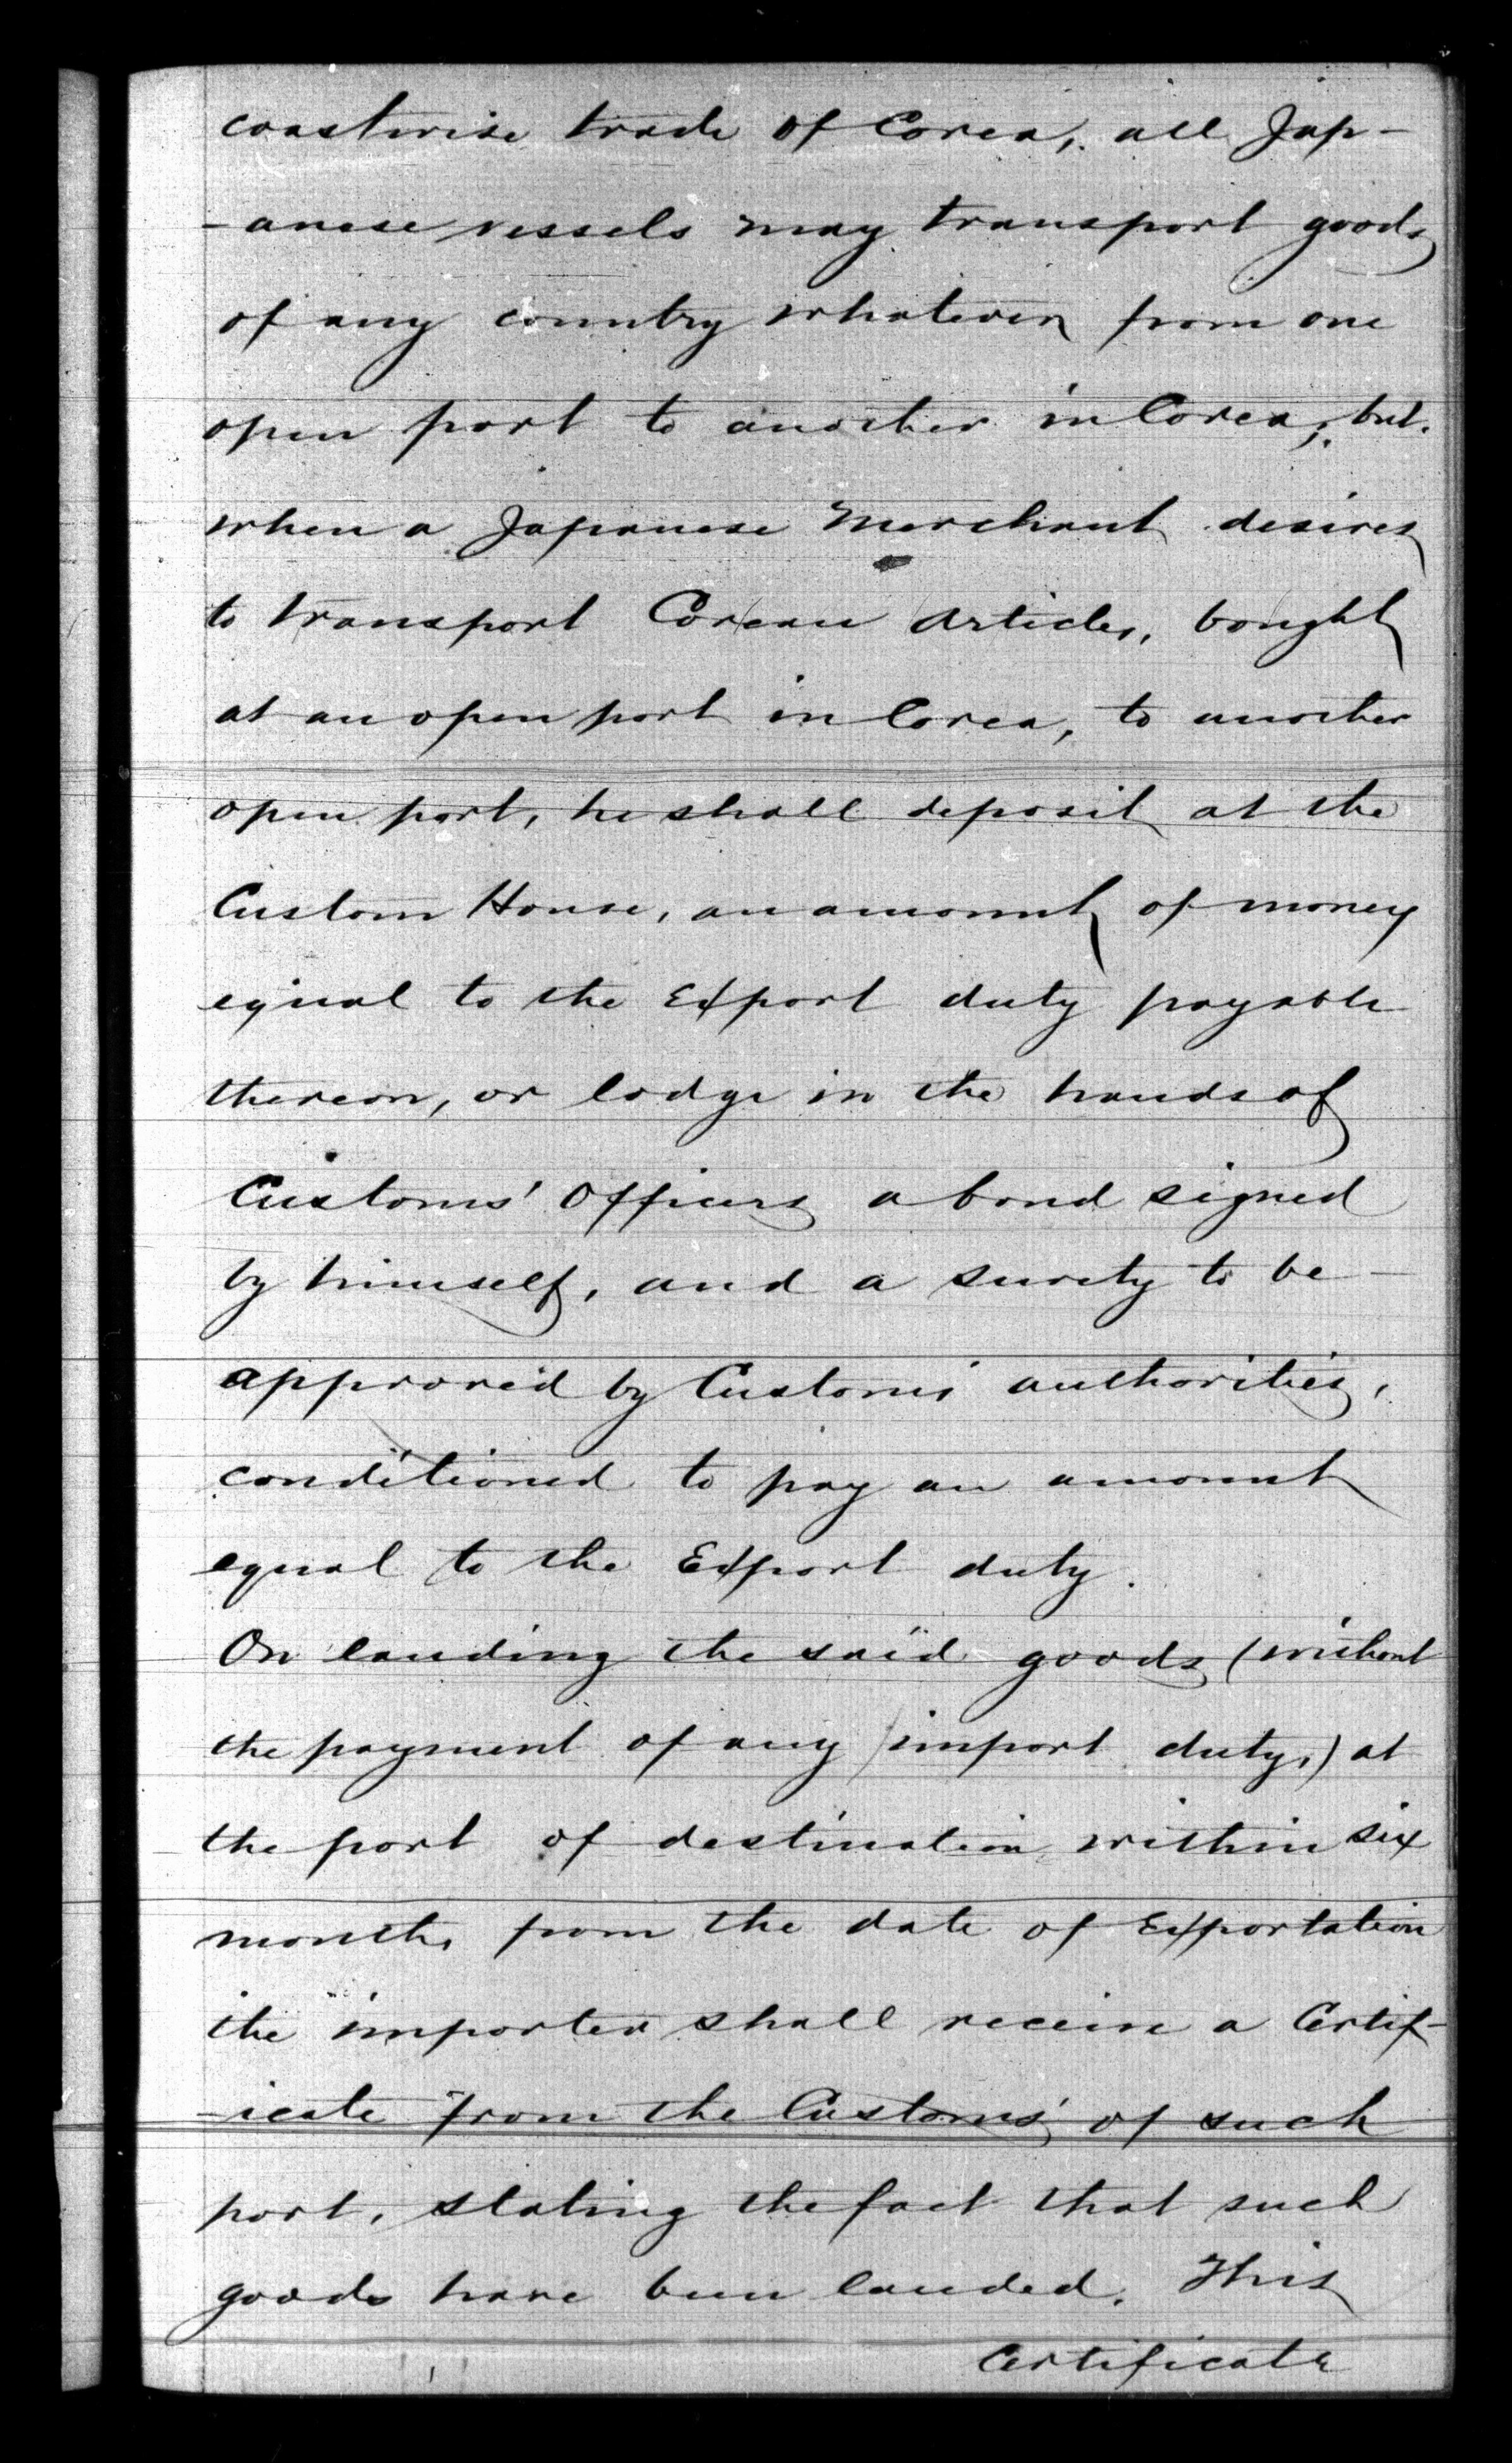 coastwise trade of Corea, all Jap-
-anese vessels may transport goods
of any country whatever from one
open port to another in Corea; but.
when a Japanese Merchant desires
to transport Corean Articles, bought
at an open port in Corea, to another
open port, he shall deposit at the
Custom House, an amount of money
equal to the Export duty payable
thereon, or lodge in the hands of
Customs' Officers a bond signed
by himself, and a surety to be
approved by Customs' authorities,
conditioned to pay an amount
equal to the Export duty.
On landing the said goods (without
the payment of any import duty,) at
the port of destination within six
months from the date of Exportation
the importer shall receive a Certif-
-icate from the Customs' of such
port, stating the fact that such
goods have been landed. This
Certificate